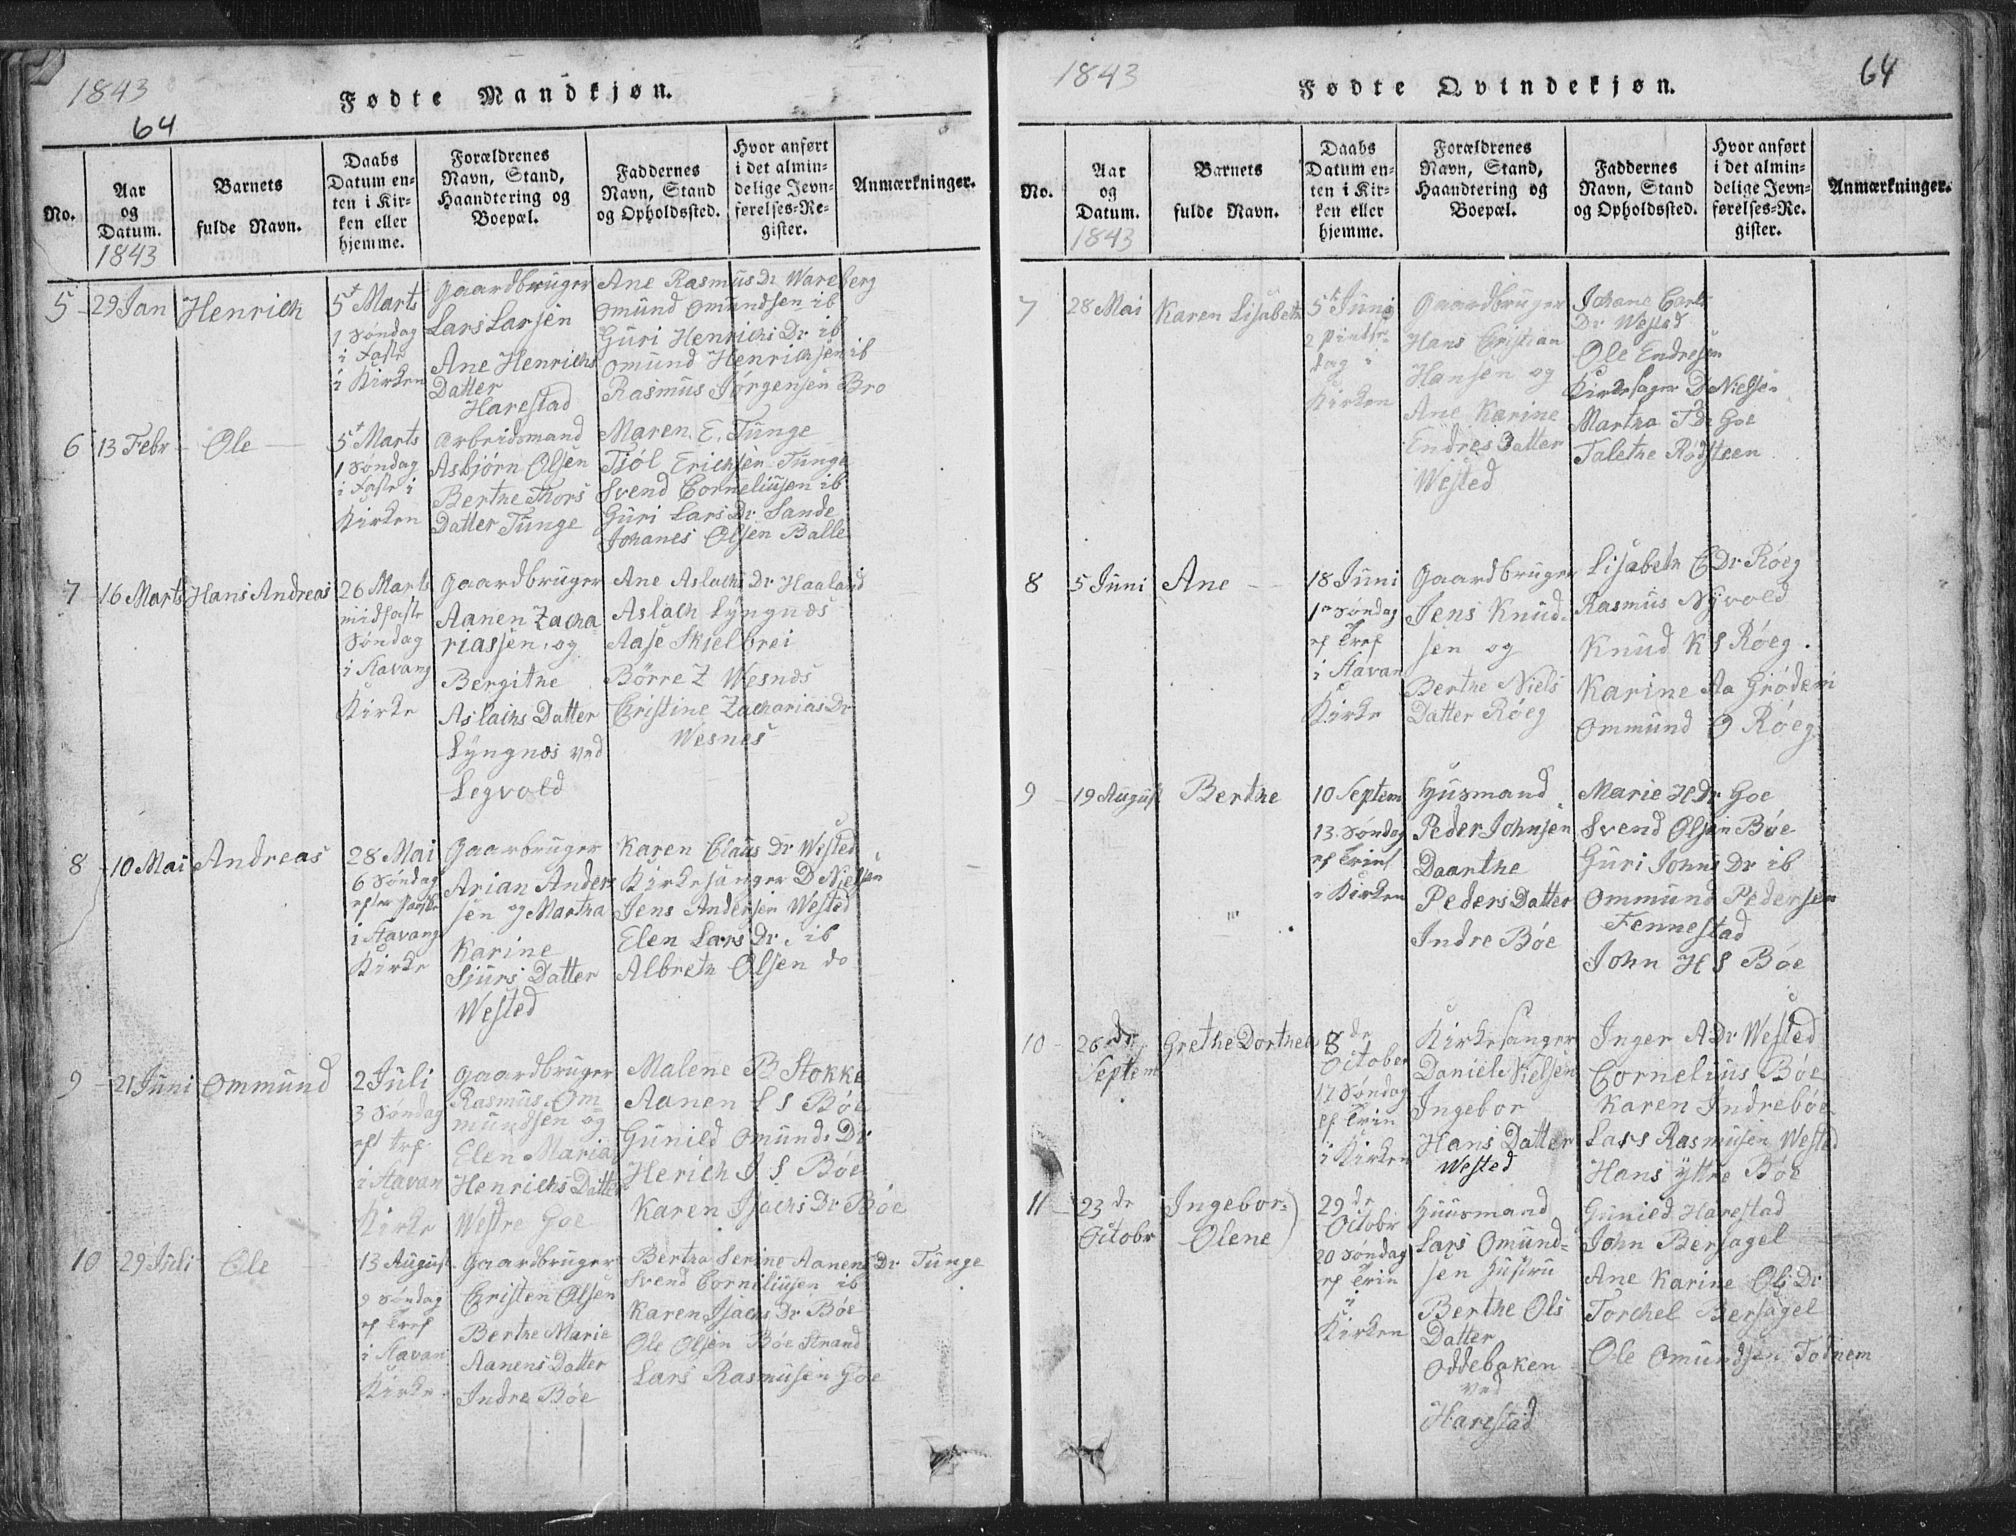 1843
64
Fødte Mandkjøn.
No.
Aar
og
Datum.
1843
Barnets
fulde Navn.
Daabs
Datum en-
ten i Kir-
ken eller
hjemme.
Forældrenes
Navn, Stand,
Haandtering og
Boepæl.
Faddernes
Navn, Stand
og Opholdssted.
Hvor anført
i det almin-
delige Jevn-
førelses-Re-
gister.
Anmærkninger.
5
29 Jan
Henrich
5t Marts
1 Søndag
i Faste
i Kirken
Gaardbruger
Lars Larsen
Ane Henrichs
Datter
Harestad
Ane Rasmus Dr Wareberg
Omund Omundsen ib
Guri Henrichs Dr ib
Omund Henrichsen ib
Rasmus Jørgensen Bro
6
13 Febr
Ole
5t Marts
1 Søndag
i Faste i
Kirken
Arbeidsmand
Asbjørn Olsen
Berthe Thors
Datter Tunge
Maren E. Tunge
Tjøl Erichsen Tunge
Svend Corneliusen ib
Guri Lars Dr Sande
Johanes Olsen Balle
7
16 Marts
Hans Andreas
26 Marts
midfaste
Søndag
i Stavang
Kirke
Gaardbruger
Aanen Zacha-
riassen, og
Bergithe
Aslachs Datter
Lyngnæs ved
Legvold
Ane Aslachs Dr Haaland
Aslach Lyngnæs
Aase Skjelbrei
Børre Z Wesnæs
Christine Zacharias Dr
Wesnes
8
10 Mai
Andreas
28 Mai
6 Søndag
efter Paaske
i Stavang
Kirke
Gaarbruger
Arian Anders
sen og Martha
Karine
Sjurs Datter
Wested
Karen Claus Dr Wested
Kirkesanger D Nielsen
Jens Andersen Wested
Elen Lars Dr. ib
Albreth Olsen do
9
21 Juni
Ommund
2 Juli
3 Søndag
eft tref
i Stavan
Kirke
Gaardbruger
Rasmus Om-
mundsen og
Elen Maria
Henrichs Datter
Westre Goe
Malene B Stokke
Aanen L S Bøe
Gunild Omunds Dr
Herich J S Bøe
Karen Isachs Dr Bøe
10
29 Juli
Ole
13 August
9 Søndag
ef Tref
i Stavan
Kirke
Gaardbruger
Cristen Olsen
Berthe Marie
Aanens Datter
Indre Bøe
Bertha Serine Aanens Dr Tunge
Svend Corneliusen ib
Karen Isachs Dr Bøe
Ole Olsen Bøe Strand
Lars Rasmusen Goe
1843
Fødte Qvindekjøn.
64
No.
Aar
og
Datum.
1843
Barnets
fulde Navn.
Daabs
Datum en-
ten i Kir-
ken eller
hjemme.
Forældrenes
Navn, Stand,
Haandtering og
Boepæl.
Faddernes
Navn, Stand
og Opholdssted.
Hvor anført
i det almin-
delige Jevn-
førelses-Re-
gister.
Anmærkninger.
7
28 Mai
Karen Lisabeth
5t Juni
2 Pintse-
dag i
Kirken
Gaardbruger
Hans Cristian
Hansen og
Ane Karine
Endres Datter
Wested
Johane Carls
Dr Wested
Ole Endresen
Kirkesager D Nielsen
Martha T Dr Goe
Talethe Rødsteen
8
5 Juni
Ane
18 Juni
1n Søndag
ef Tref
i Stavan
Kirke
Gaardbruger
Jens Knud-
sen og
Berthe Niels
Datter Røeg
Lisabeth E Dr Røeg
Rasmus Nyvold
Knud K S Røeg.
Karine Aa Grødem
Ommund O Røeg
9
19 August
Berthe
10 Septem
13 Søndag
ef Trinf
i Kirken
Husmand
Peder Johnsen
Daarthe
Peders Datter
Indre Bøe
Marie H Dr Goe
Svend Olsen Bøe
Guri Johns Dr ib
Ommund Pedersen
Fennestad
John H S Bøe
10
26 de
Septem
Grethe Dorthea
8 de
October
17 Søndag
ef Trin
i Kirken
Kirkesanger
Daniel Nielsen
Ingebor
Hans Datter
Wested
Inger A Dr Wested
Cornelius Bøe
Karen Indrebøe
Lars Rasmusen Wested
Hans yttre Bøe
11
23 de
Octobr
Ingebor-
Olene
29 de
Octobr
20 Søndag
ef Trin
i
Kirken
Huusmand
Lars Omund-
sen Hustru
Berthe Ols
Datter
Oddebaken
ved
Harestad
Gunild Harestad
John Bersagel
Ane Karine Ols Dr
Torchel Bersagel
Ole Omundsen Todnem